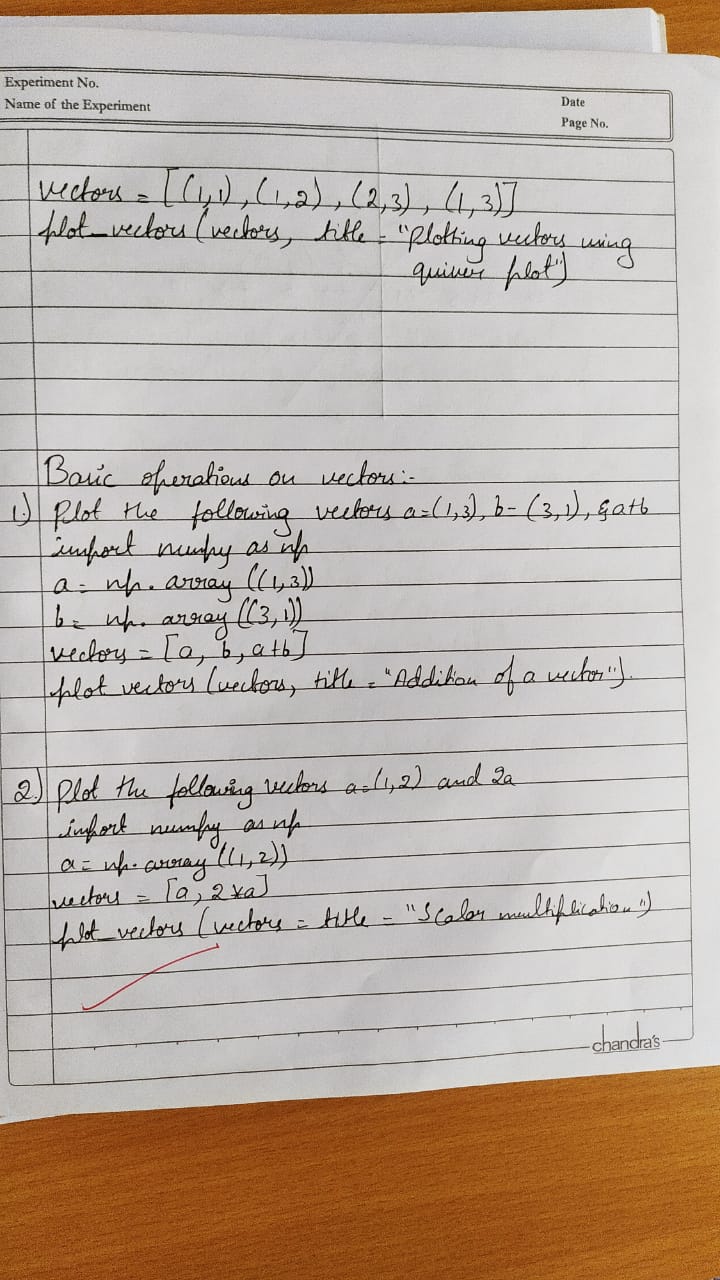 Experiment No.
Name of the Experiment
Date
Page No.
vectors = [(1,1), (1,2), (2,3), (1,3)]
plot_vectors (vectors, title = "Plotting vectors using
quiver plot")
Basic operations on vectors:-
1.) Plot the following vectors a=(1,3), b-(3,1), & a+b
import numpy as np
a = np. array ((1,3))
b = np. array ((3,1))
vectors = [a, b, a+b]
plot vectors (vectors, title = "Addition of a vector").
2.) Plot the following vectors a=(1,2) and 2a
import numpy as np
a = np. array ((1,2))
vectors = [a, 2*a]
plot_vectors (vectors = title = "Scalar multiplication")
chandra's